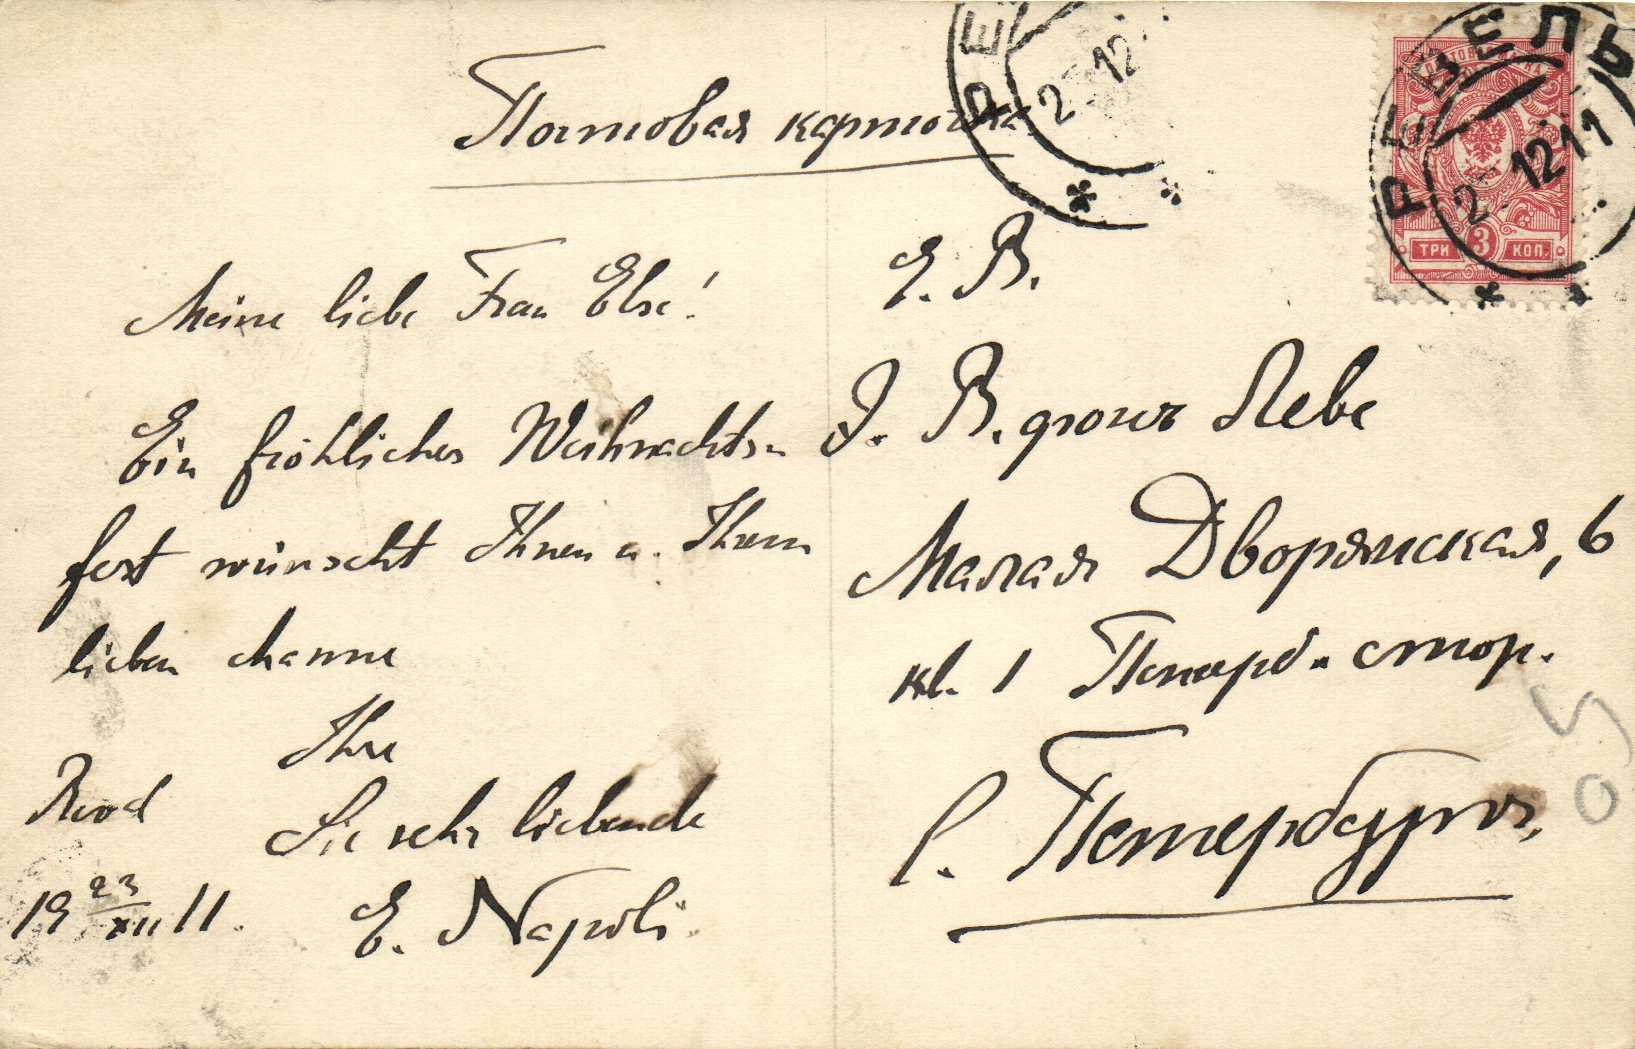 Почтовая карточка
РЕ
2 12.
РЕВЕЛЬ
2 12 11
ПОЧТОВАЯ МАРКА
ТРИ 3 КОП.
Meine liebe Frau Else!
Ein fröhliches Weihnachts-
fest wünscht Ihnen u. Ihrem
lieben Manne
Ihre
Sie sehr liebende
E. Napoli
Reval
19 23/XII 11.
Е. В.
Э. В. фонъ Леве
Малая Дворянская, 6
кв. 1 Петерб. стор.
С. Петербургъ,